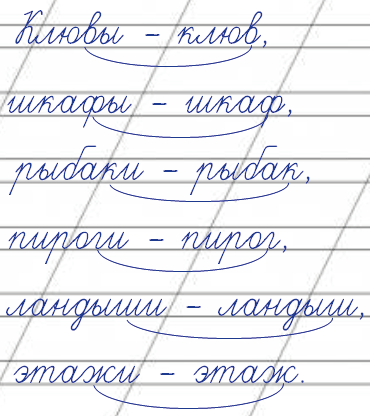 Клювы - клюв,
шкафы - шкаф,
рыбаки - рыбак,
пироги - пирог,
ландыши - ландыш,
этажи - этаж.